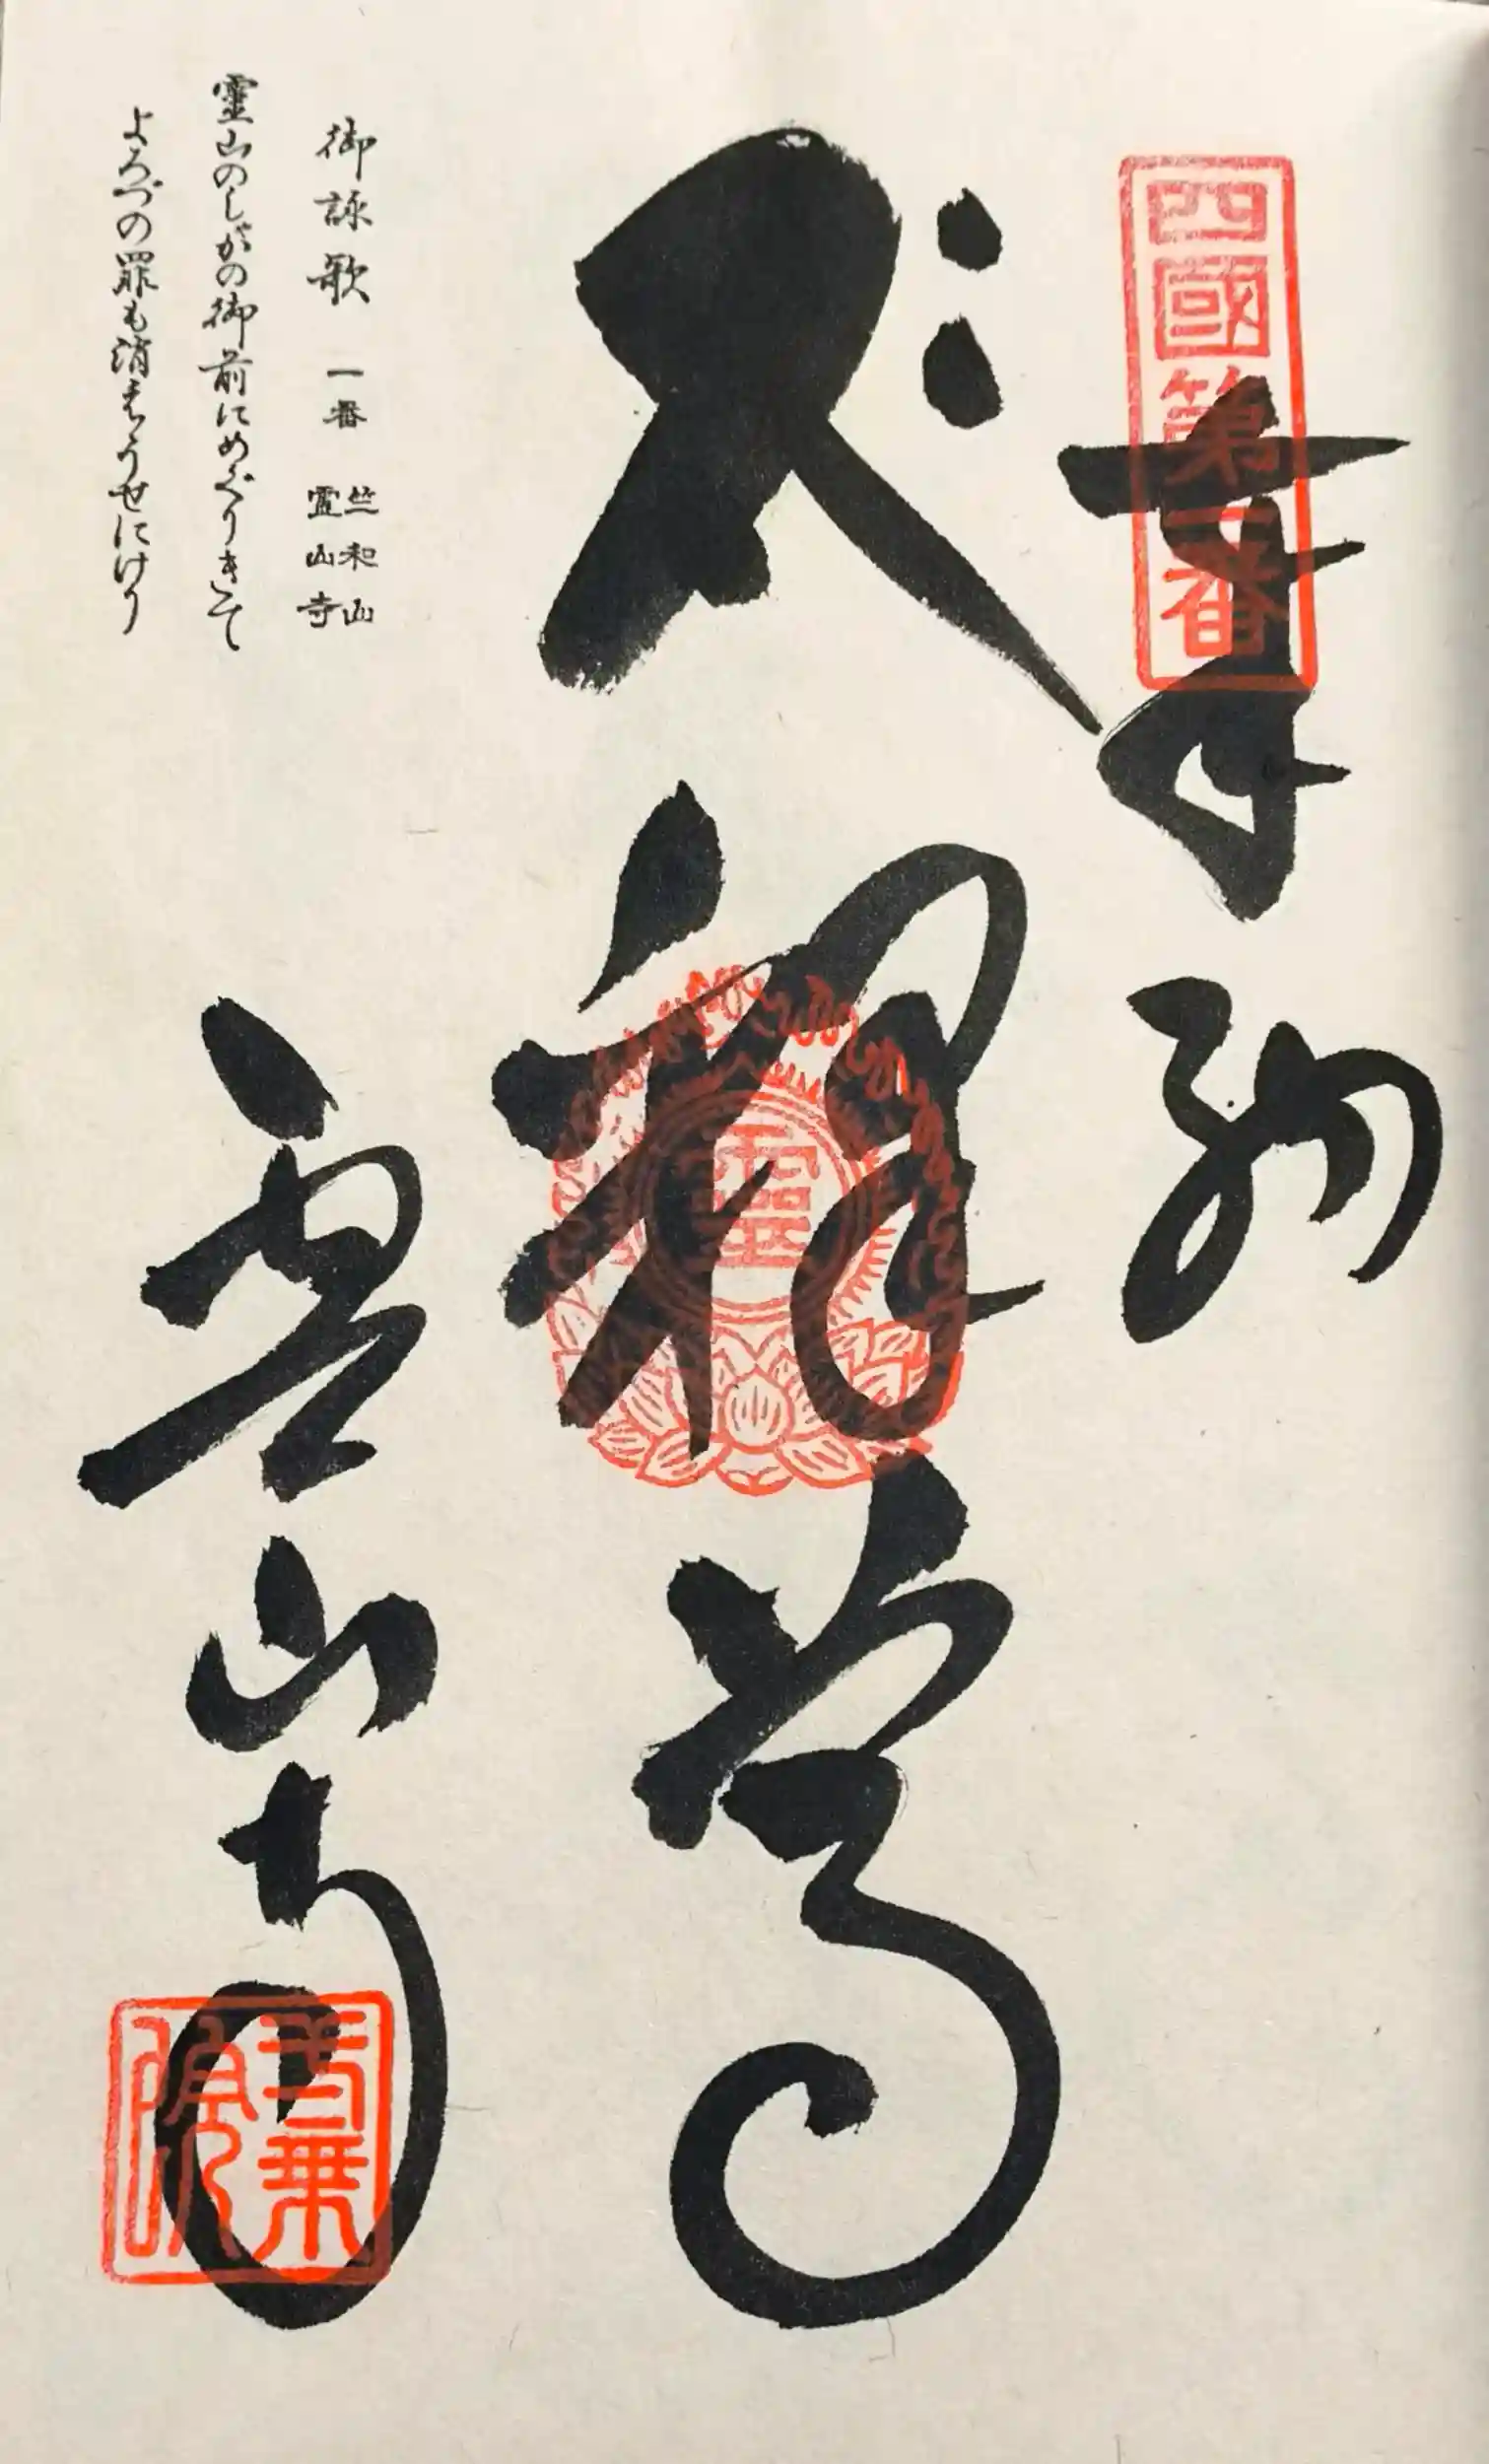 四國第一番
奉納
釋尊
霊山寺
一乗院
御詠歌 一番 竺和山 靈山寺
靈山のしゃかの御前にめぐりきて
よろづの罪も消えうせにけり